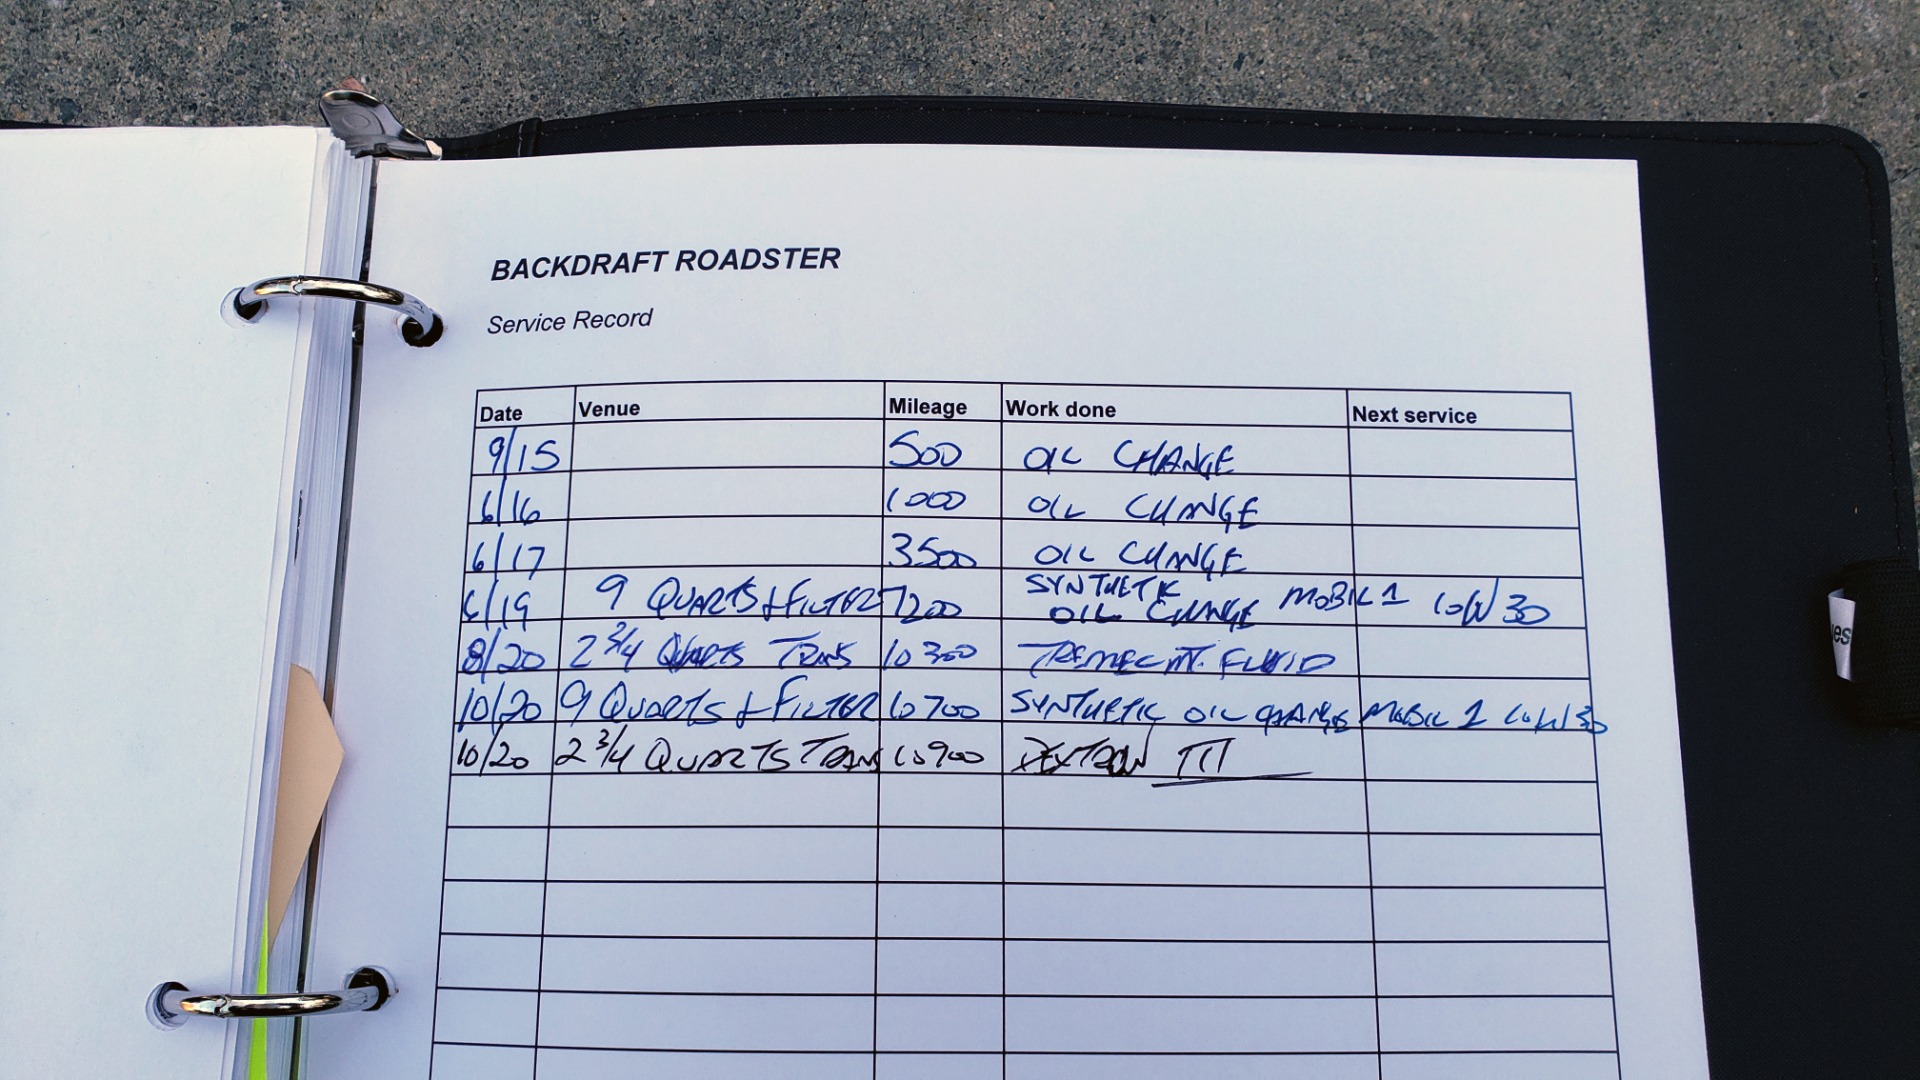 BACKDRAFT ROADSTER
Service Record
Date Venue Mileage Work done Next service
9/15 500 OIL CHANGE
6/16 1000 OIL CHANGE
6/17 3500 OIL CHANGE
6/19 9 QUARTS & FILTER 7200 SYNTHETIC OIL CHANGE MOBIL 1 10W30
8/20 2 3/4 QUARTS TRANS 10300 TREMEC MT. FLUID
10/20 9 QUARTS & FILTER 10700 SYNTHETIC OIL CHANGE MOBIL 1 10W30
10/20 2 3/4 QUARTS TRANS 10900 DEXTRON III
es